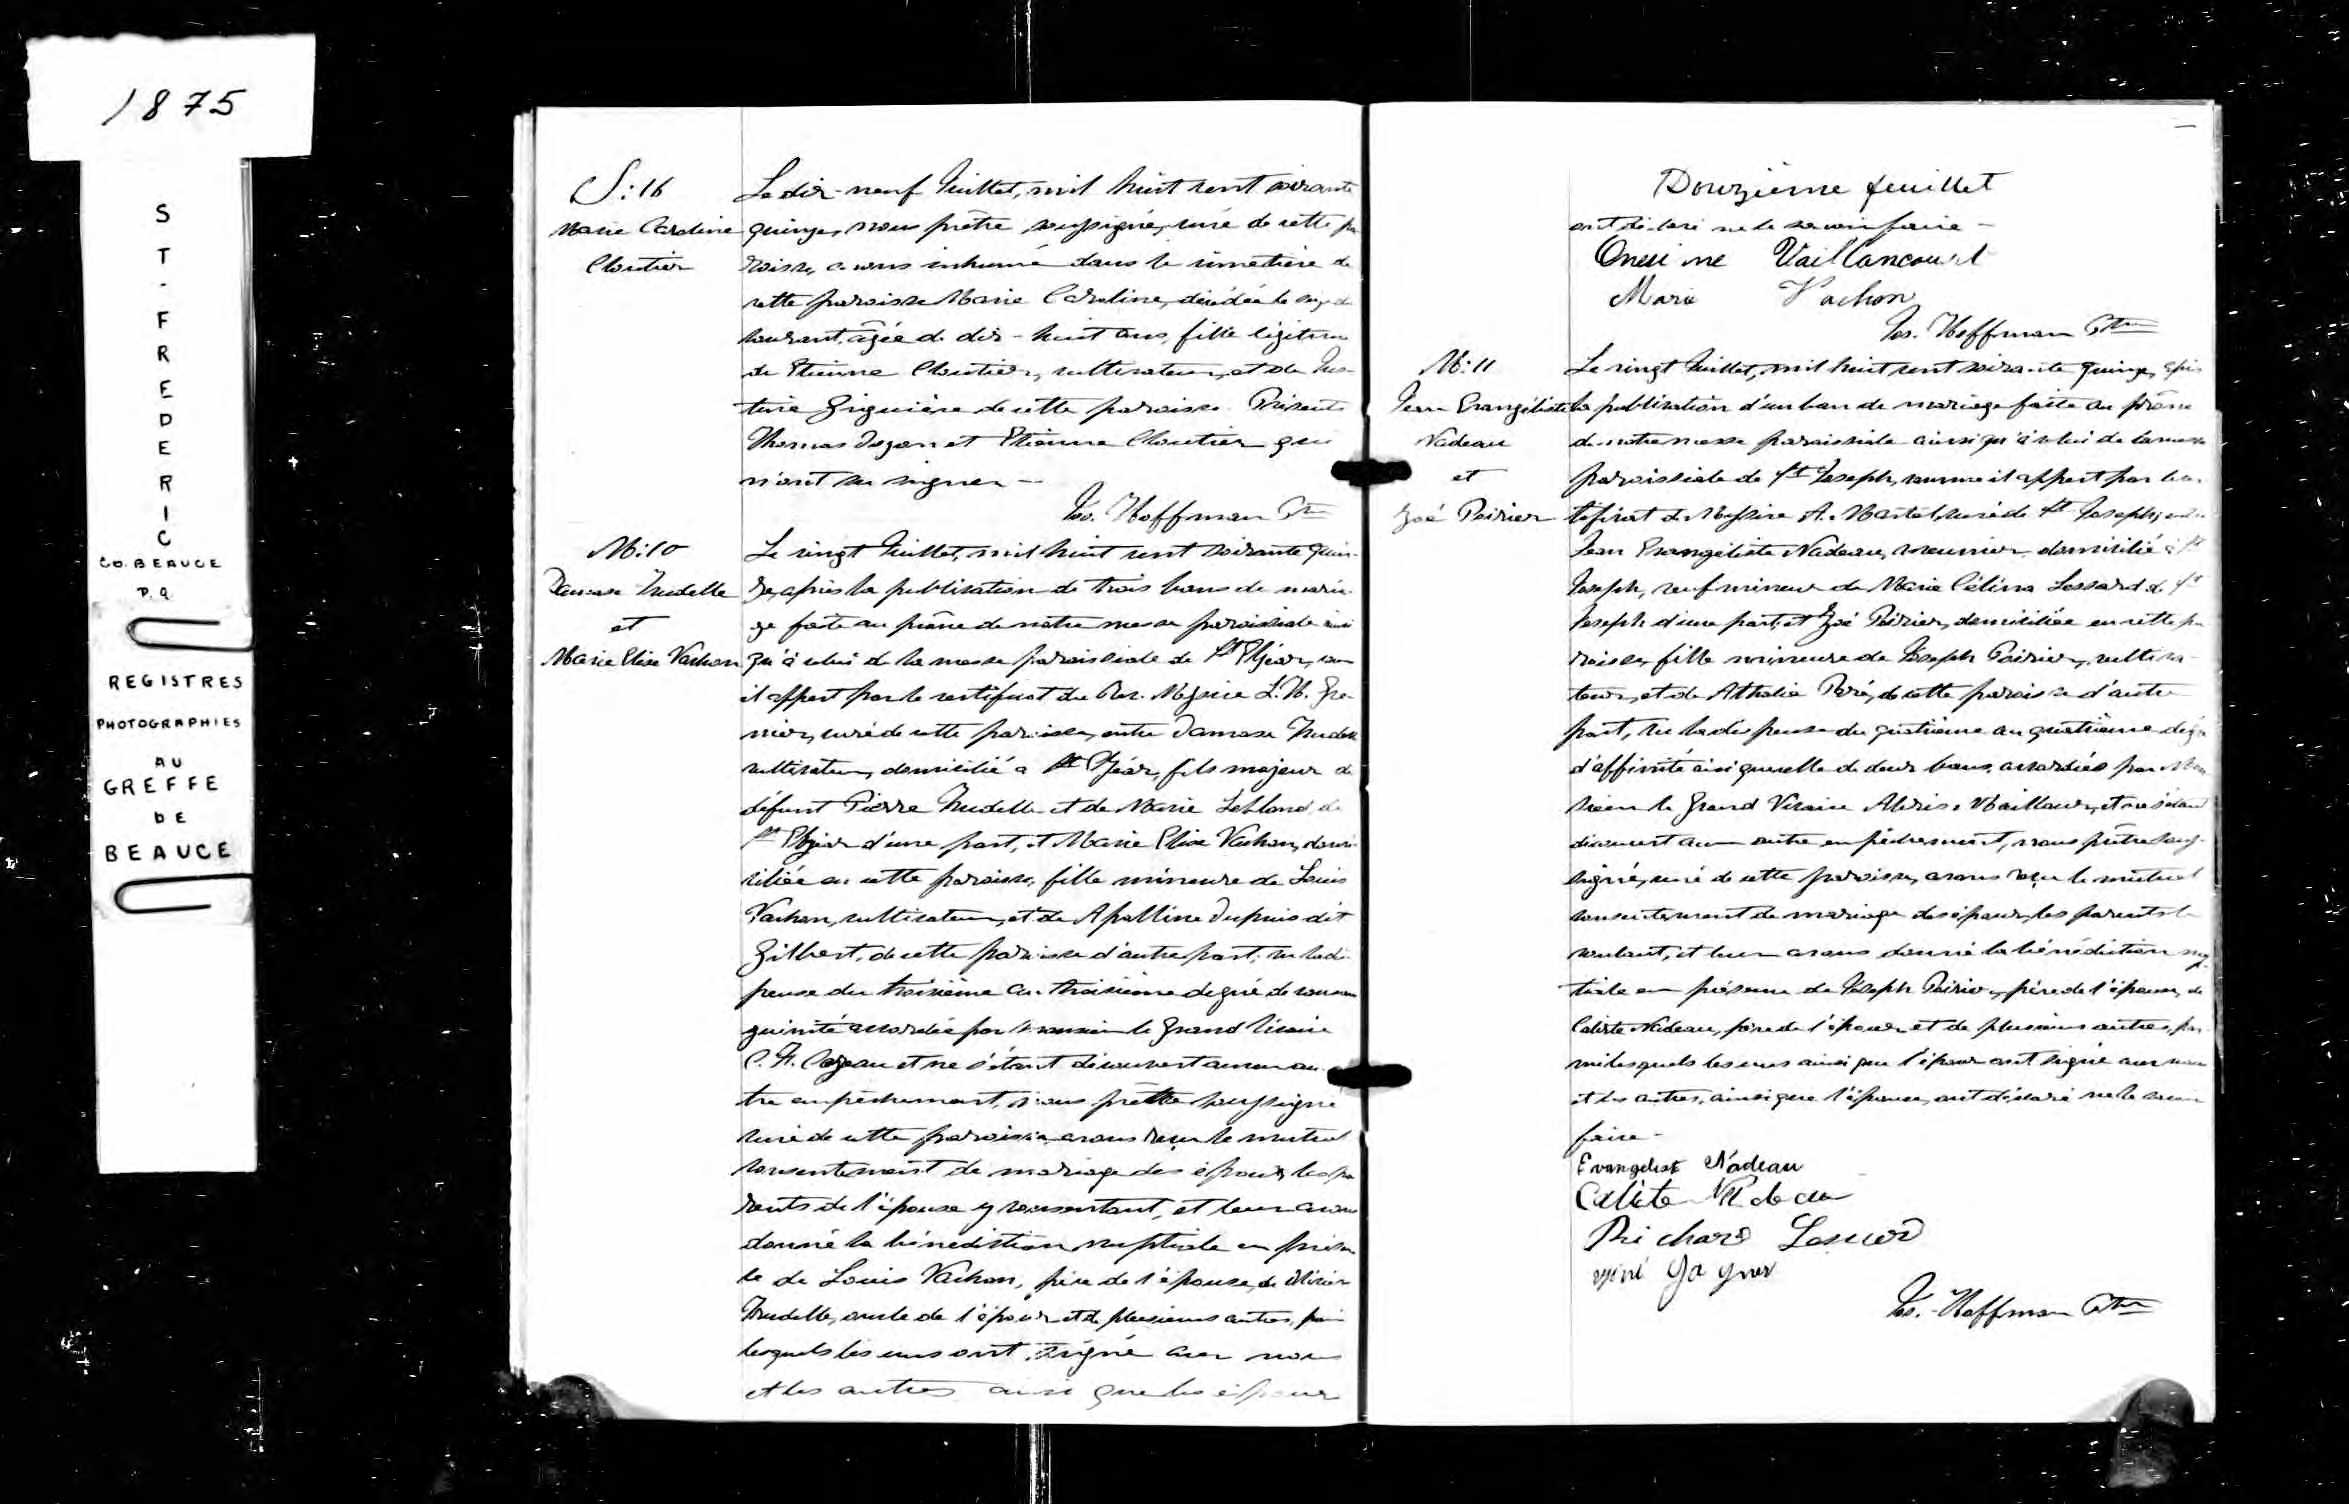 1875
ST-FREDERIC
CO. BEAUCE
P.Q.
REGISTRES
PHOTOGRAPHIES
AU
GREFFE
DE
BEAUCE
S:16
Marie Caroline
Cloutier
Le dix-neuf Juillet, mil huit cent soixante
quinze, nous prêtre soussigné, curé de cette pa
roisse, avons inhumé dans le cimetière de
cette paroisse Marie Caroline, décédée le
courant, âgée de dix-huit ans, fille légitime
de Etienne Cloutier, cultivateur, et de Jus-
tine Giguière de cette paroisse. Présents
Thomas et Etienne Cloutier qui
n'ont su signer -
Jos. Hoffman Ptre
M:10
Damase Trudelle
et
Marie Elise Vachon
Le vingt Juillet, mil huit cent soixante quin-
ze, après la publication de trois bans de maria-
ge faite au prône de notre messe paroissiale ainsi
qu'à celui de la messe paroissiale de St Elzéar, com
il appert par le certificat du Rev. Messire L. H. Gre-
nier, curé de cette paroisse, entre Damase Trudelle
cultivateur, domicilié à St Elzéar, fils majeur de
défunt Pierre Trudelle et de Marie Leblond, de
St Elzéar d'une part, et Marie Elise Vachon, domi-
ciliée en cette paroisse, fille mineure de Louis
Vachon, cultivateur, et de Apolline Dupuis dit
Gilbert, de cette paroisse d'autre part; vu la dis
pense du troisième au troisième degré de consan
guinité accordée par Monsieur le Grand Vicaire
C. F. Cazeau et ne s'étant découvert aucun au-
tre empêchement, nous prêtre soussigné
curé de cette paroisse, avons reçu le mutuel
consentement de mariage des époux, les pa
rents de l'épouse y consentant, et leur avons
donné la bénédiction nuptiale en présen
ce de Louis Vachon, père de l'épouse, de Olivier
Trudelle, oncle de l'époux et de plusieurs autres, par
lesquels les uns ont signé avec nous
et les autres ainsi que les époux
Douzième feuillet
ont déclaré ne le savoir faire -
Onesime Vaillancourt
Marie Vachon
Jos. Hoffman Ptre
M:11
Jean Evangéliste
Nadeau
et
Zoé Poirier
Le vingt Juillet, mil huit cent soixante quinze, après
la publication d'un ban de mariage faite au prône
de notre messe paroissiale ainsi qu'à celui de la messe
paroissiale de St Joseph, comme il appert par le cer
tificat de Messire A. Martel, curé de St Joseph; entre
Jean Evangéliste Nadeau, meunier, domicilié à St
Joseph, veuf mineur de Marie Célina Lessard de St
Joseph d'une part; et Zoé Poirier, domiciliée en cette pa
roisse, fille mineure de Joseph Poirier, cultiva-
teur, et de Athalie Paré, de cette paroisse d'autre
part, vu la dispense du quatrième au quatrième degré
d'affinité ainsi que celle de deux bans, accordées par Mon
sieur le Grand Vicaire Alexis Mailloux, et ne s'étant
découvert aucun autre empêchement, nous prêtre sous-
signé, curé de cette paroisse, avons reçu le mutuel
consentement de mariage des époux, les parents le
voulant, et leur avons donné la bénédiction nup-
tiale en présence de Joseph Poirier, père de l'épouse, de
Calixte Nadeau, père de l'époux et de plusieurs autres, par
mi lesquels les uns ainsi que l'époux ont signé avec nous
et les autres, ainsi que l'épouse, ont déclaré ne le savoir
faire -
Evangelist Nadeau
Calicte Nadeau
Richard Lessard
Gagner
Jos. Hoffman Ptre